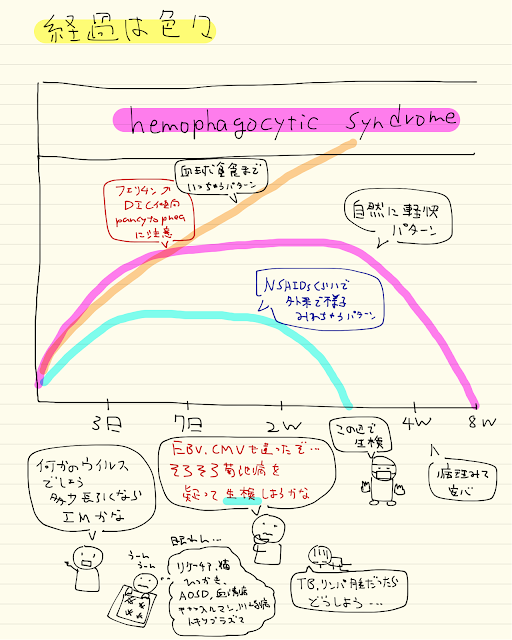 経過は色々
hemophagocytic syndrome
血球貪食まで
いっちゃうパターン
フェリチン↗
DIC傾向
pancytopnea
に注意
自然に軽快
パターン
NSAIDsくらいで
外来で様子
みれちゃうパターン
3日
7日
2W
4W
8W
何かのウイルス
でしょう
多少長引くなら
IMかな
EBV、CMVも違ったぞ…
そろそろ菊池病を
疑って生検しようかな
この辺で
生検
病理みて
安心
うーん
うーん
眠れん…
リケッチア、猫
ひっかき、
AOSD、血液病
キャッスルマン、川崎病
トキソプラズマ
TB、リンパ腫だったら
どうしよう…